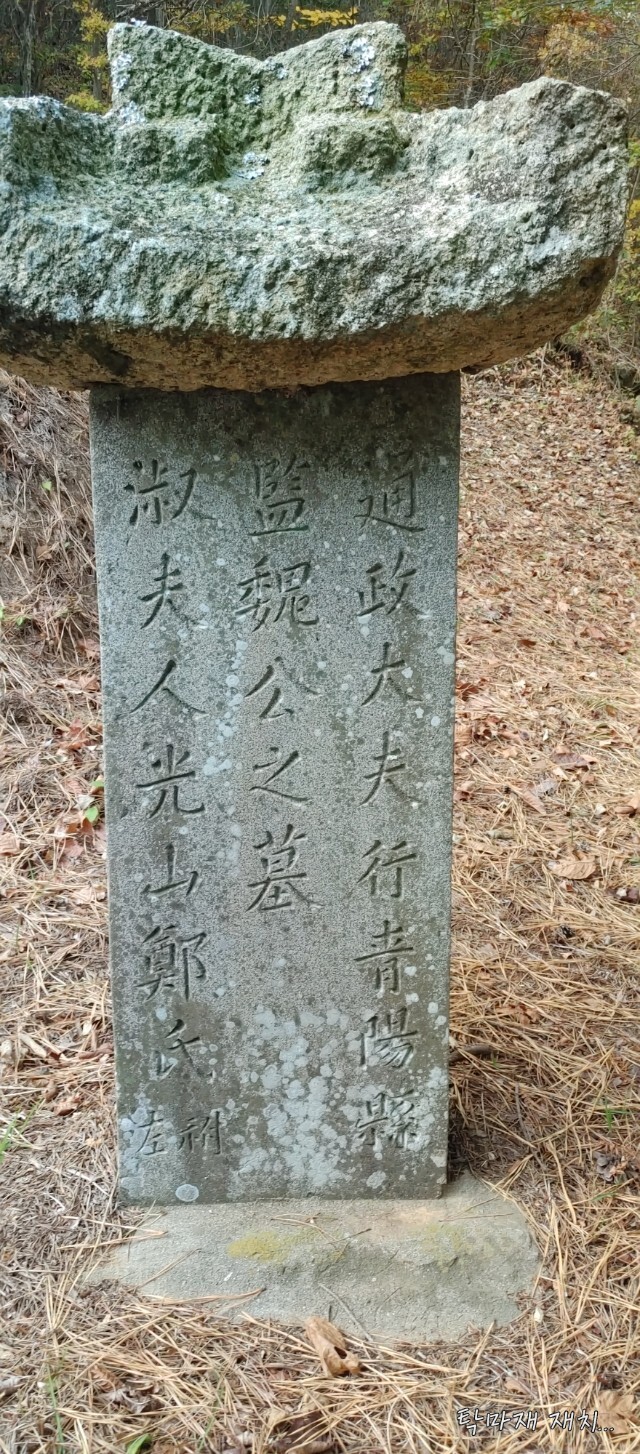 通政大夫行青陽縣
監魏公之墓
淑夫人光山鄭氏祔左
탁마재 재치...